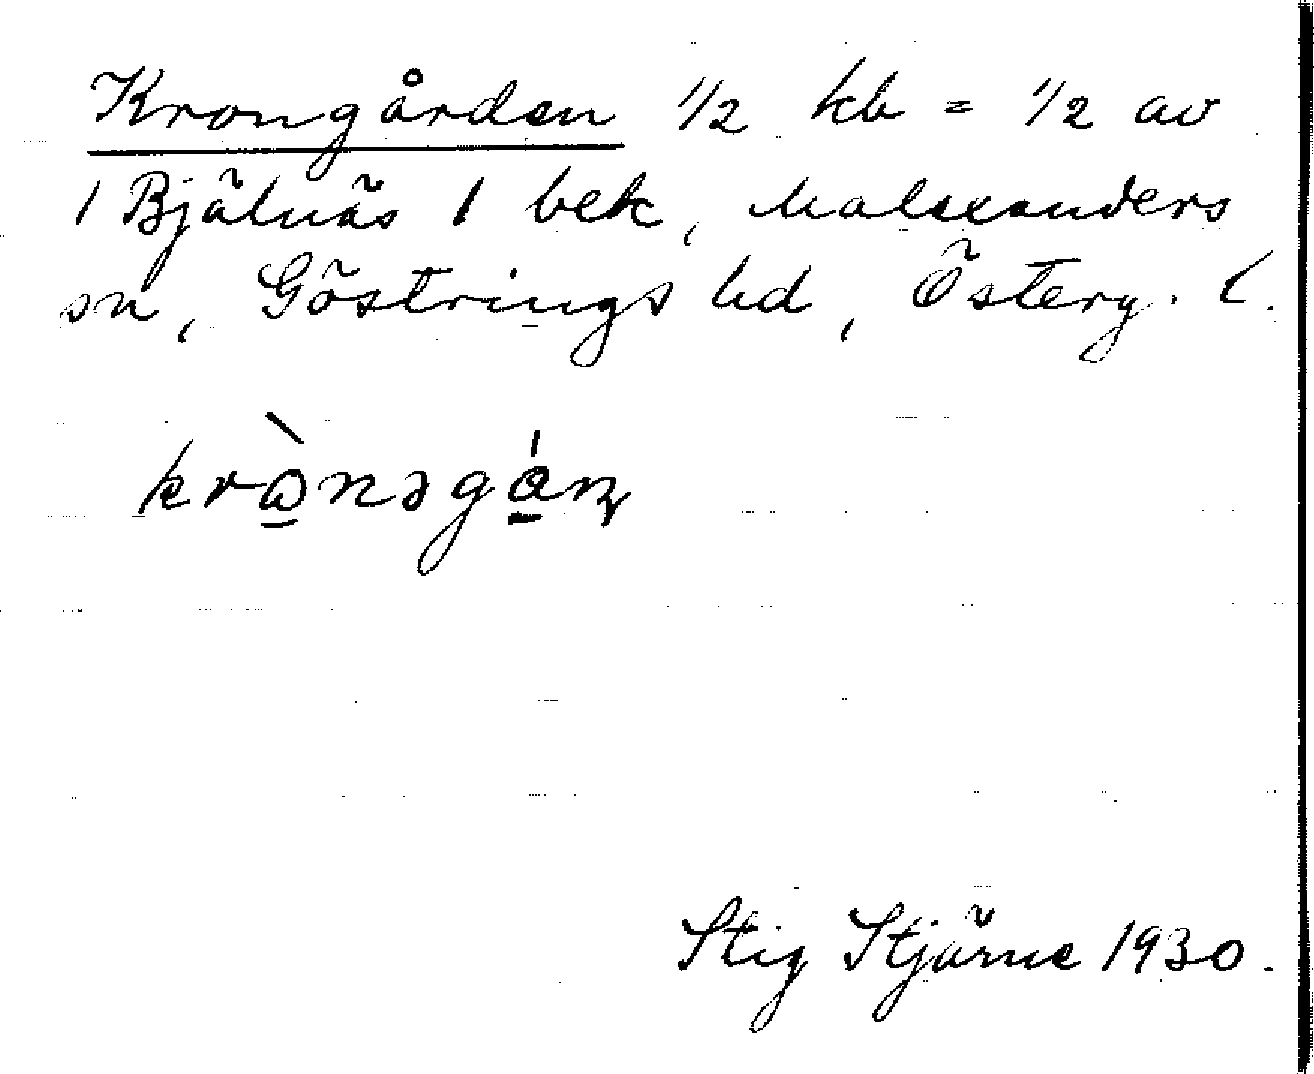 Krongården 1/2 kb = 1/2 av
1 Bjälnäs 1 bek, Malexanders
sn, Göstrings hd, Österg. l.
krὼ̱nəgώ̱ɳ
Stig Stjärne 1930.